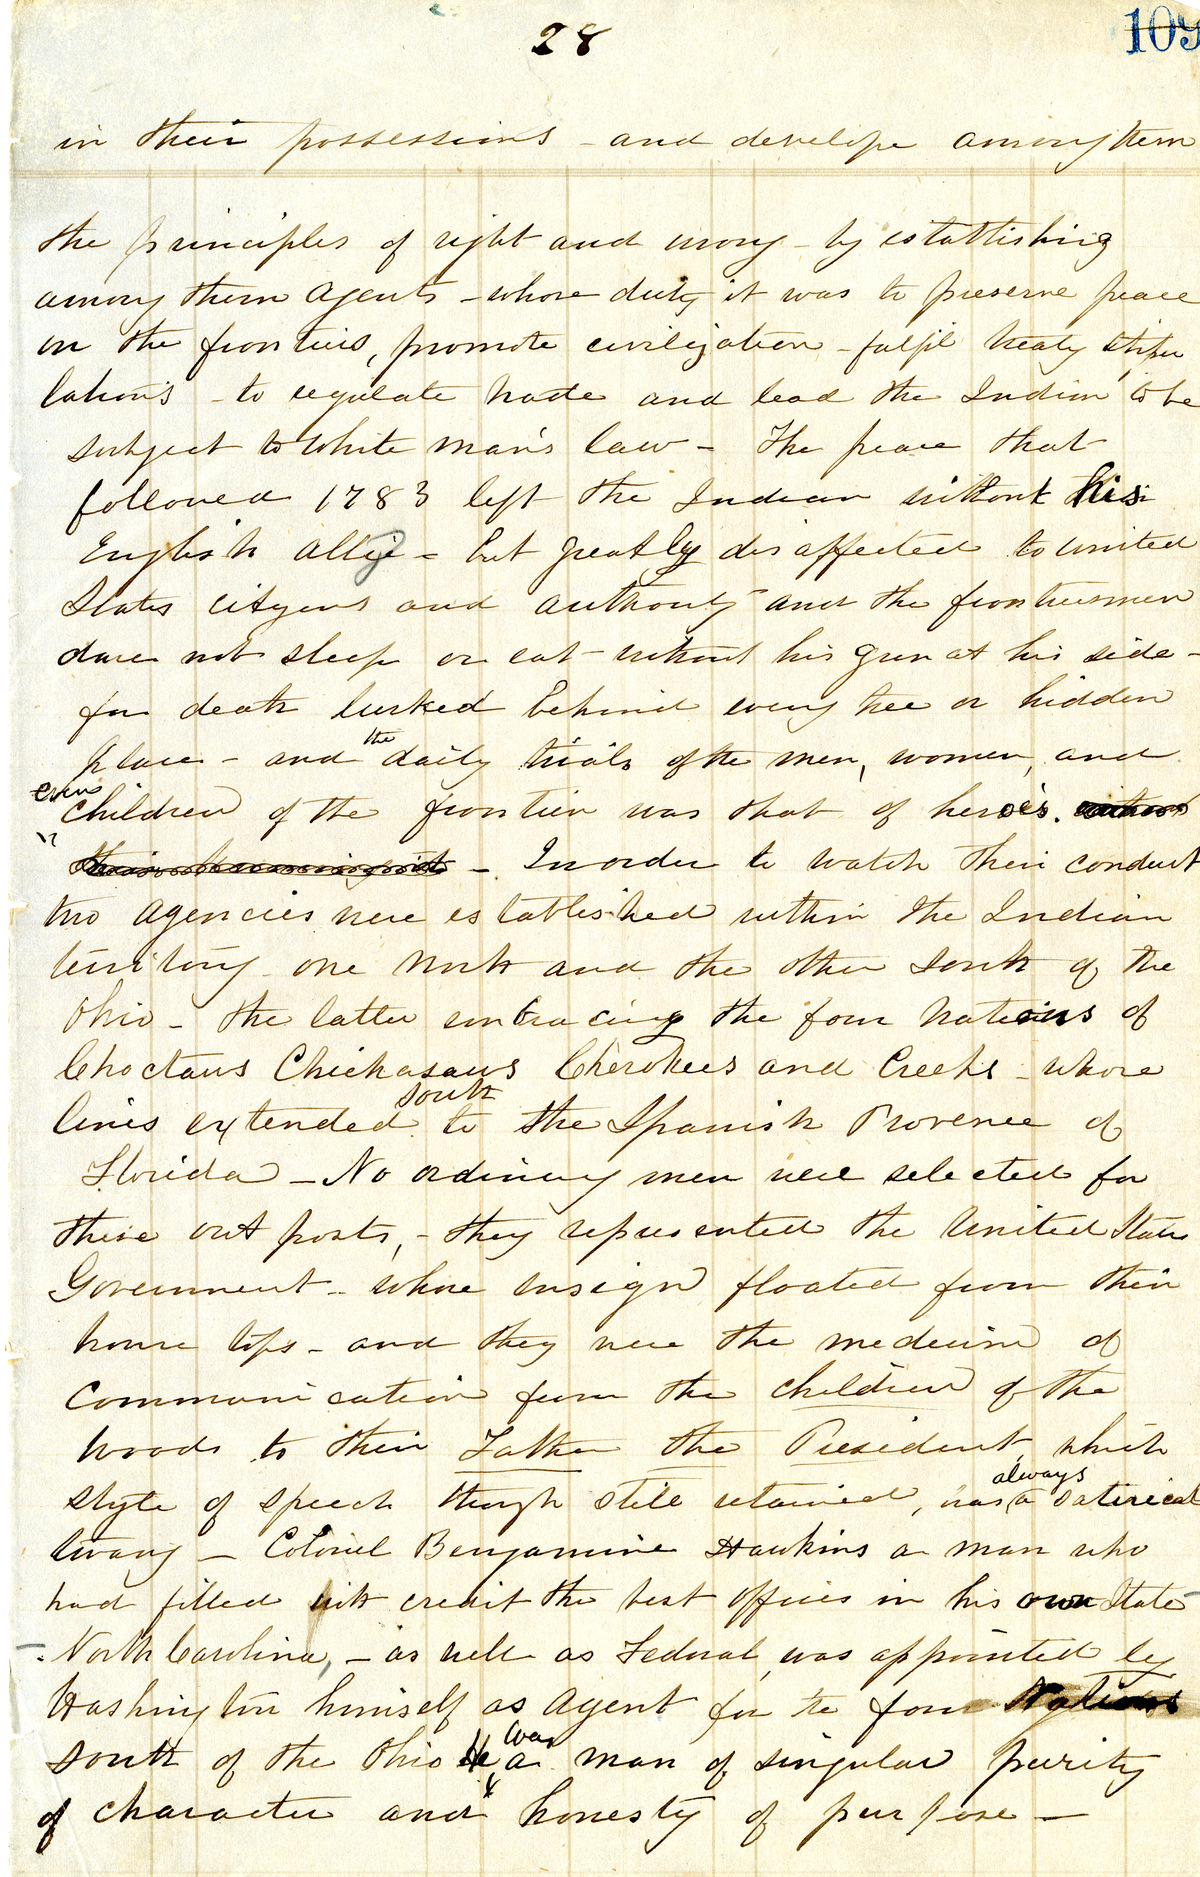 28
109
in their possessions - and develope among them
the principles of right and wrong - by establishing
among them Agents - whose duty it was to preserve peace
on the frontiers, promote civilization - fulfil treaty stipu
lations - to regulate trade and lead the Indian to be
subject to White man's law - The peace that
followed 1783 left the Indian without his
English Allie - but greatly disaffected to United
States citizens and authority and the frontiersmen
dare not sleep or eat without his gun at his side -
for death lurked behind every tree or hidden
place - and the daily trials of the men, women, and
even children of the frontier was that of heroes.
- In order to watch their conduct
two Agencies were established within the Indian
territory one North and the other South of the
Ohio - the latter embracing the four Nations of
Choctaws Chickasaws Cherokees and Creeks - whose
lines extended south to the Spanish Provence of
Florida - No ordinary men were selected for
these out posts, - they represented the United States
Government - whose ensign floated from their
house tops - and they were the medium of
Communication from the children of the
woods to their Father the President which
style of speech though still retained, was always a satirical
twang - Colonel Benjamine Hawkins a man who
had filled with credit the best offices in his own State
- North Carolina, - as well as Federal, was appointed by
Washington himself as Agent for te four Nations
south of the Ohio He was a man of singular purity
of character and honesty of purpose -